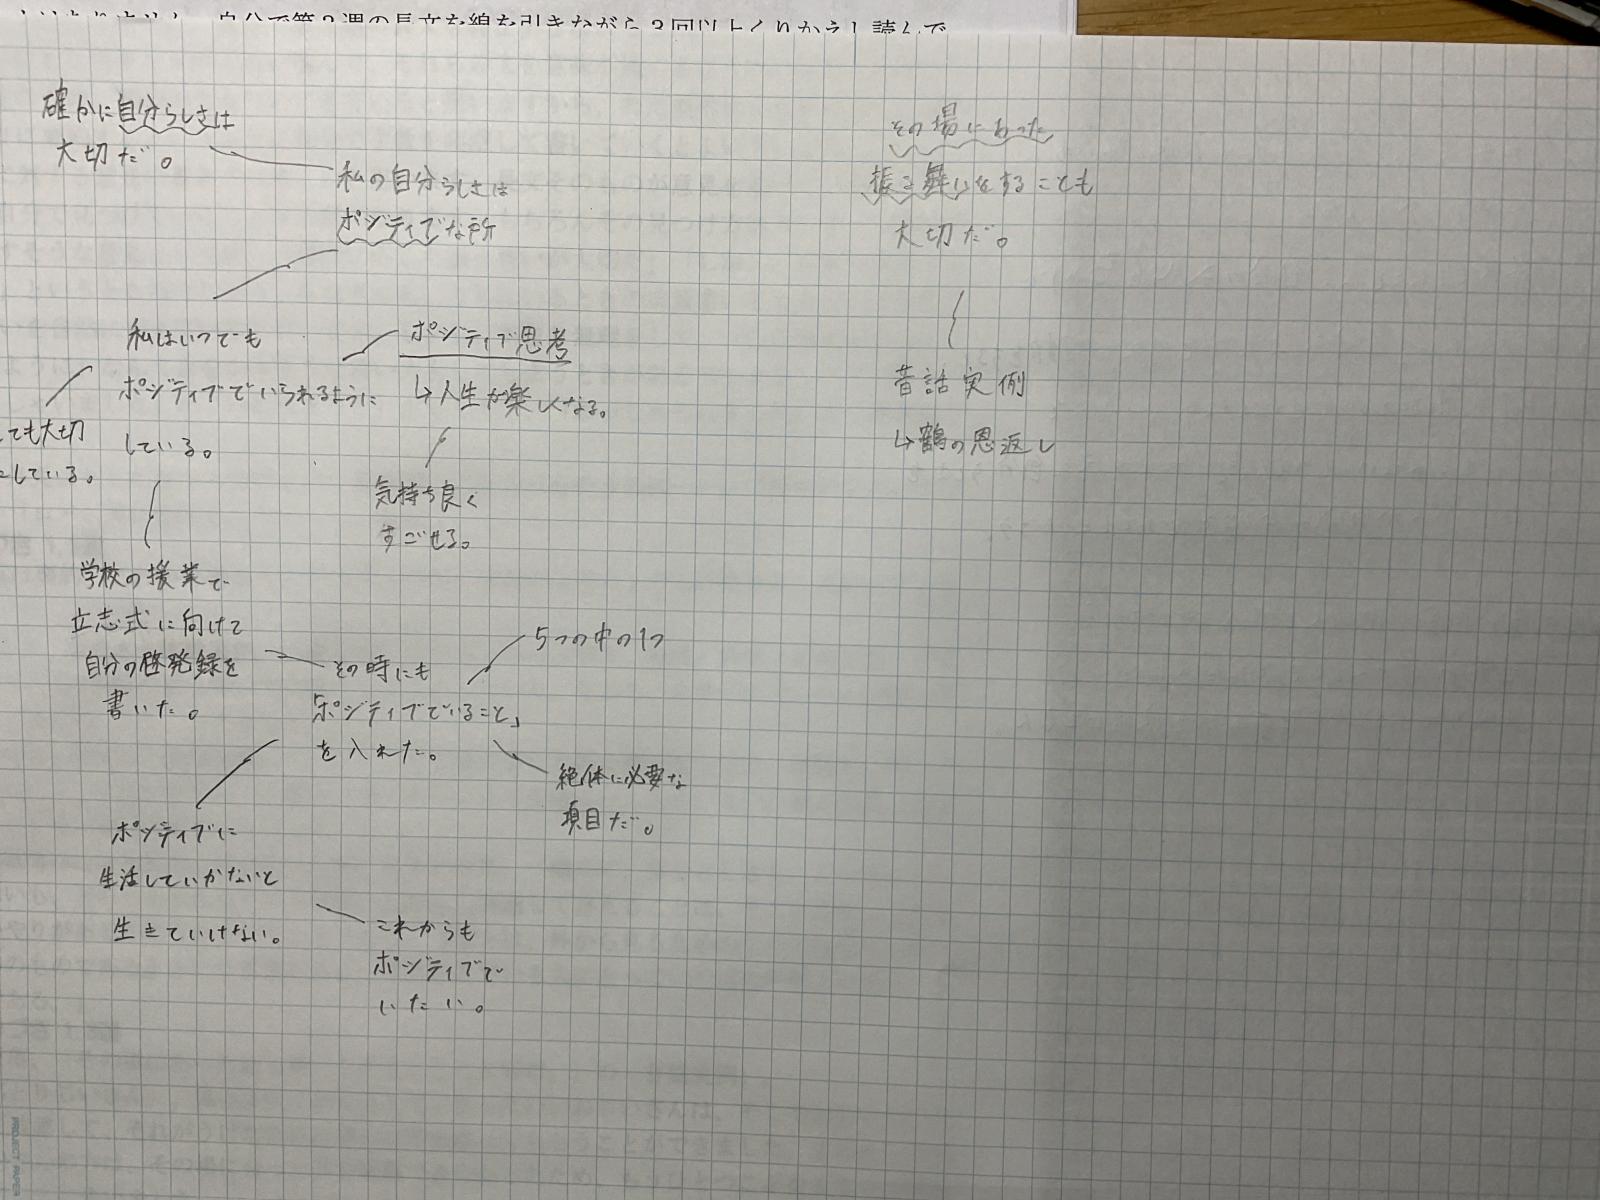 自分で第2週の長文を線を引きながら3回以上くりかえし読んで
確かに自分らしさは
大切だ。
私の自分らしさは
ポジティブな所
私はいつでも
ポジティブでいられるように
している。
ても大切
にしている。
ポジティブ思考
↳人生が楽しくなる。
気持ち良く
すごせる。
学校の授業で
立志式に向けて
自分の啓発録を
書いた。
その時にも
「ポジティブでいること」
を入れた。
5つの中の1つ
絶体に必要な
項目だ。
ポジティブに
生活していかないと
生きていけない。
これからも
ポジティブで
いたい。
その場にあった
振る舞いをすることも
大切だ。
昔話実例
↳鶴の恩返し
PROJECT PAPER